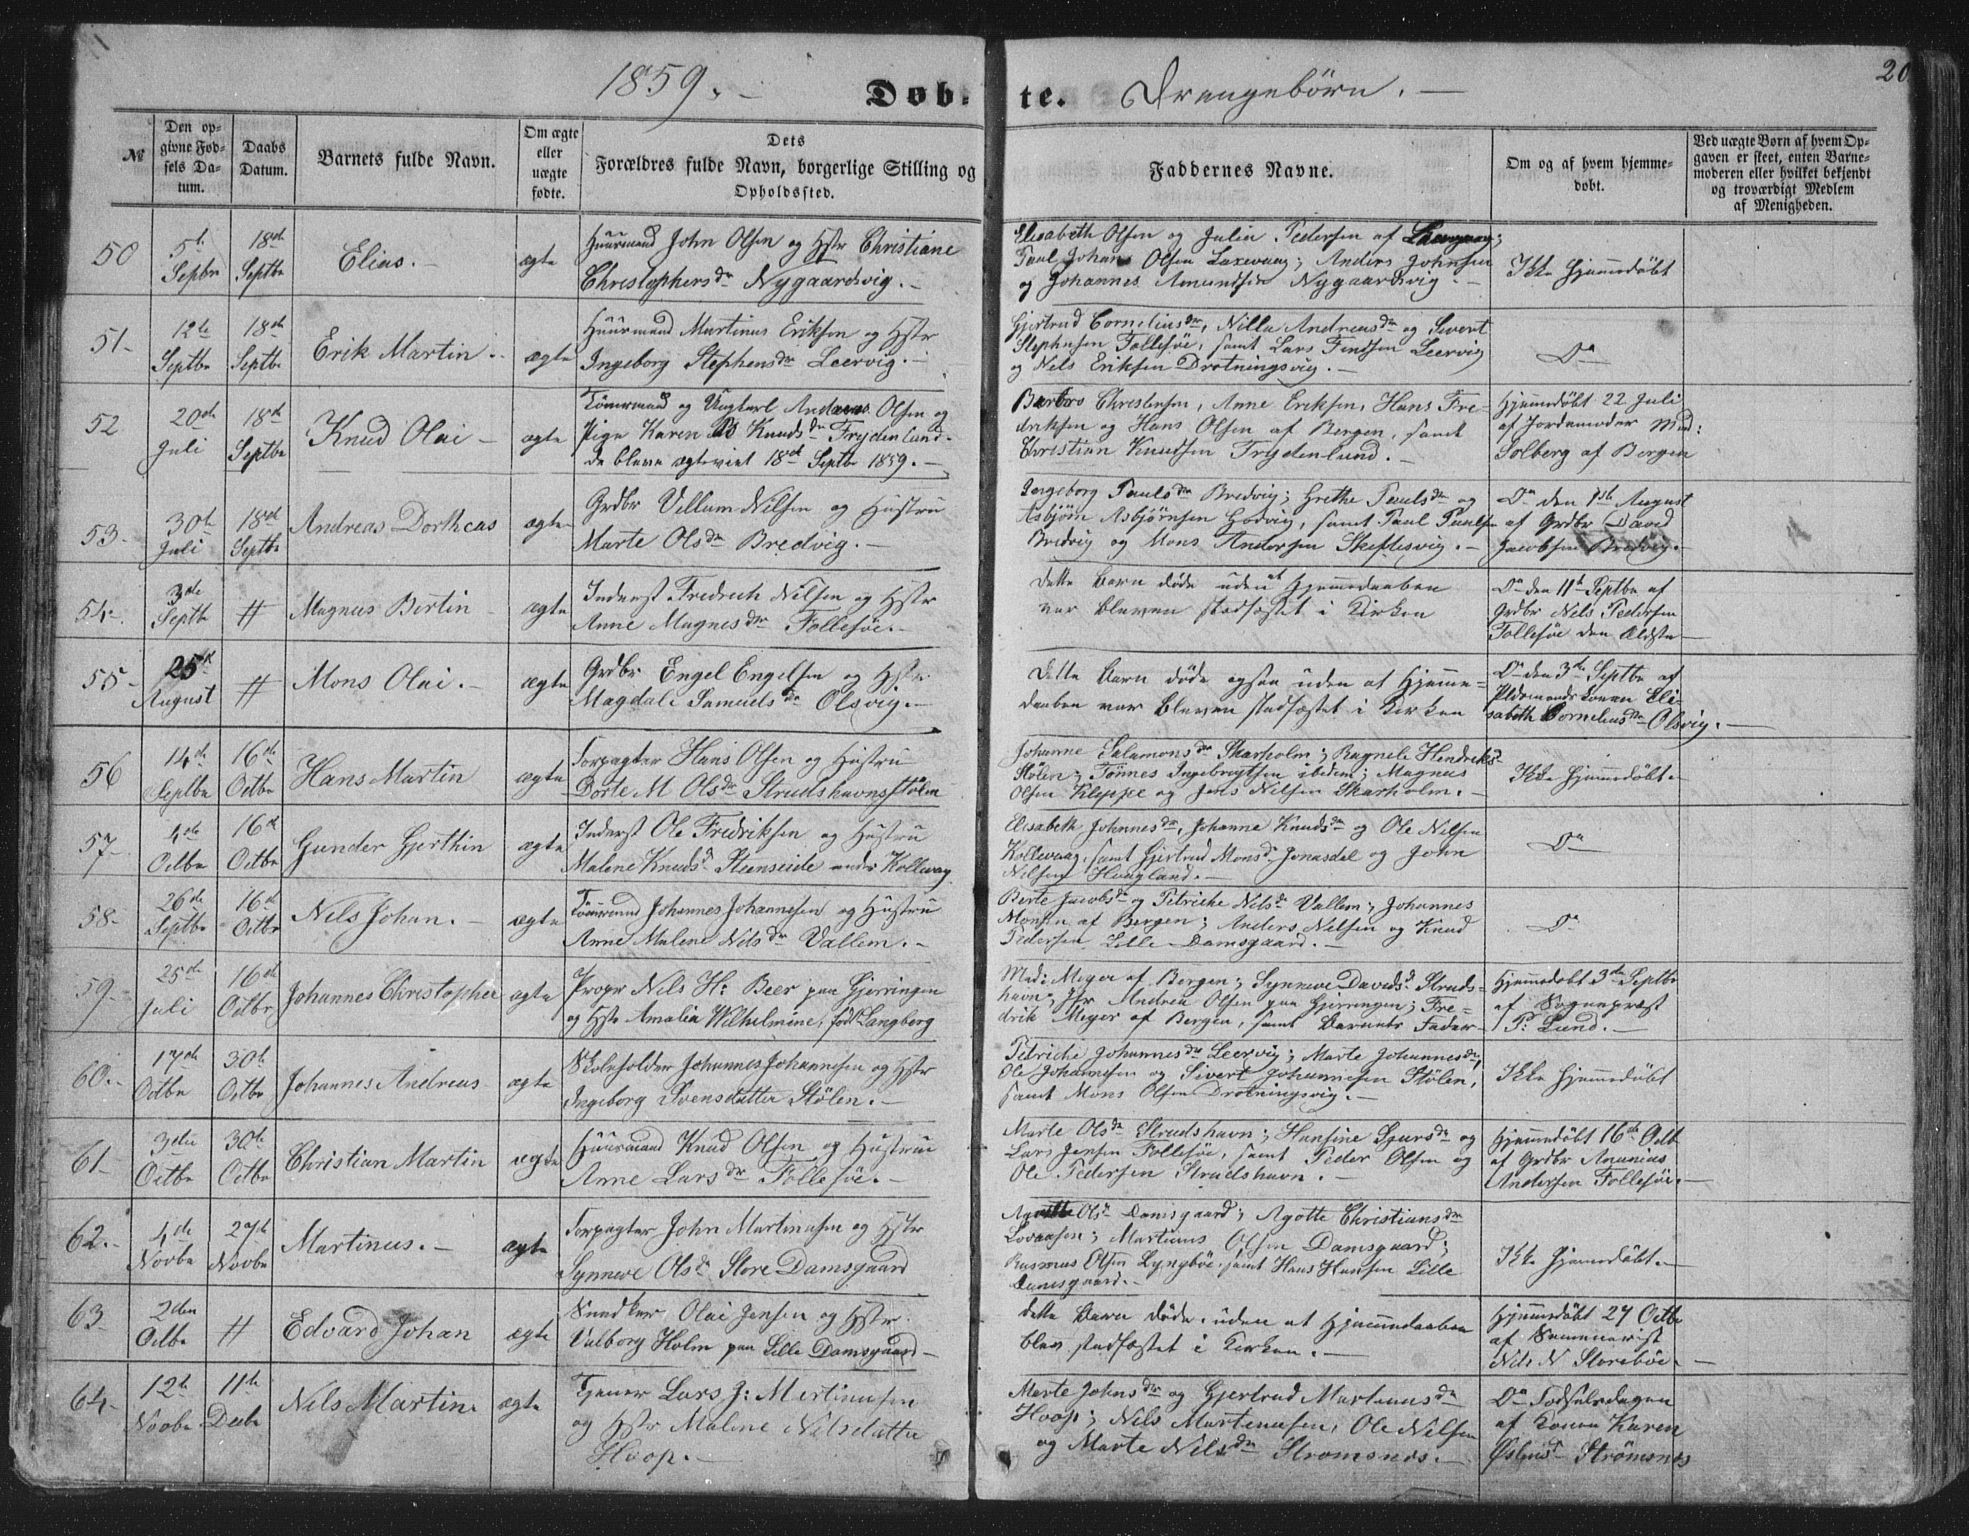 1859. Døb- te. Drengebørn. 20
№
Den opgivne Fødsels Datum.
Daabs Datum.
Barnets fulde Navn.
Om ægte eller uægte fødte.
Dets Forældres fulde Navn, borgerlige Stilling og Opholdssted.
Faddernes Navne.
Om og af hvem hjemmedøbt.
Ved uægte Børn af hvem Opgaven er skeet, enten Barnemoderen eller hvilket bekjendt og troværdigt Medlem af Menigheden.
50 5te Septbr 18de Septbr Elias. ægte
Huusmand John Olsen og Hstr Christiane
Christophersdr Nygaardsvig.
Elisabeth Olsen og Julia Pedersen af
Paul Johans Olsen Laxevaag; Anders Johnsen
og Johannes Amundsen Nygaardsvig.
Ikke hjemmedøbt
51 12te Septbr 18de Septbr Erik Martin. ægte
Huusmand Martinus Eriksen og Hstr
Ingeborg Stephensdr Leervig.
Gjertrud Corneliusdr, Nilla Andreasdr og Sivert
Stephnsen Follesøe, samt Lars Findsen Leervig
og Nils Eriksen Drotningsvig.
Do
52 20de Juli 18de Septbr Knud Olai ægte
Tømrmand og Ungkarl Andreas Olsen og
Pige Karen Knudsdr Frydenlund.
de bleve ægteviet 18de Septbr 1859.
Barbro Christensen, Anne Eriksen, Hans Fre-
driksen og Hans Olsen af Bergen, samt
Christian Knudsen Frydenlund.
Hjemmedøbt 22 Juli
af Jordemoder Mad:
Solberg af Bergen
53 30te Juli 18de Septbr Andreas Dortheas ægte
Grdbr Villum Nilsen og Hustru
Marte Olsdr Bredvig.
Ingeborg Paulsdr Bredvig; Grethe Paulsdr og
Asbjørn Asbjørnsen Godvig, samt Paul Paulsen
Bredvig og Mons Andersen Skiftesvig.
Do den 1ste August
af Grdbr David
Jacobsen Bredvig.
54 3de Septbr # Magnus Bertin ægte
Inderst Fredrich Nilsen og Hstr
Anne Magnesdr Follesøe.
Dette Barn døde uden at Hjemmedaaben
var bleven stadfæstet i Kirken
Do den 11te Septbr af
Grdbr Nels Pedersen
Follesøe den Ældste
55 25de August # Mons Olai. ægte
Grdbr Engel Engelsen og Hstr
Magdal: Samuelsdr Olsvig.
Dette Barn døde ogsaa uden at Hjemme-
daaben var bleven stadfæstet i Kirken
Do den 3de Septbr af
Oldermands Konen Eli-
sabeth Corneliusdr Olsvig.
56 14de Septbr 16de Octbr Hans Martin ægte
Forpagter Hans Olsen og Hustru
Dorte M Olsdr Strudshavns Stølen
Johanne Salamonsdr Skarholm; Ragnele Hendriksd
Stølen; Tønnes Ingebregtsen ibidem; Magnus
Olsen Kleppe og Jens Nilsen Skarholm.
Ikke hjemmedøbt.
57 4de Octbr 16de Octbr Gunder Gjerthin ægte
Inderst Ole Fredriksen og Hustru
Malene Knudsd Steenseide under Kollevag
Elisabeth Johnnesdr, Johanne Knudsdr og Ole Nilsen
Kollevaag, samt Gjertrud Monsd Jonasdal og John
Nilsen Haagland.
Do
58 26de Septbr 16de Octbr Nils Johan. ægte
Tømrmand Johannes Johannesen og Hustru
Anne Malene Nilsdr Vallem.
Berte Jacobsdr og Petriche Nilsdr Vallem; Johannes
Monsen af Bergen; Anders Nilsen og Knud
Pedersen Lille Damsgaard.
Do
59 25de Juli 16de Octbr Johannes Christopher ægte
Propr Nils H: Beer paa Gjerringen
og Hstr Amalia Wilhelmine, fød Langberg
Mad: Meyer af Bergen; Synneve Davidsd Struds-
havn; Andrea Olsen paa Gjerringen; Fre-
drik Meyer af Bergen, samt Barnets Fader
Hjemmedøbt 3de Septbr
af Sognepræst
P: Lund.
60. 17de Octbr 30te Octbr Johannes Andreas ægte
Skoleholder Johannes Johannesen og Hstr
Ingeborg Svensdatter Stølen.
Petriche Johannesdr Leervig; Marte Johannesdr,
Ole Johannesen og Sivert Johannesen Stølen,
samt Mons Olsen Drotningsvig.
Ikke hjemmedøbt
61 3die Octbr 30te Octbr Christian Martin ægte
Huusmand Knud Olsen og Hustru
Anne Larsdr Follesøe.
Marte Olsdr Strudshavn; Hansine Sjursdr og
Lars Jensen Follesøe, samt Peder Olsen og
Ole Pedersen Strudshavn.
Hjemmedøbt 16de Octb
af Grdbr Ananias
Andersen Follesøe.
62. 4de Novbr 27de Novbr Martinus. ægte
Forpagter John Martinusen og Hstr
Synneve Olsdr Store Damsgaard
Olsdr Damsgaard; Agotte Christiansdr
Lovaasen; Martinus Olsen Damsgaard;
Rasmus Olsen Lyngbøe, samt Hans Hansen Lille
Damsgaard.
Ikke hjemmedøbt.
63 2den Octbr # Edvard Johan ægte
Snedker Olai Jensen og Hstr
Valborg Holm paa Lille Damsgaard
Dette Barn døde, uden at Hjemmedaaben
blev stadfæstet i Kirken.
Hjemmedøbt 27 Octbr
af Seminarist
Nils N Storebøe.
64 12te Novbr 11te Decbr Nils Martin ægte
Tjener Lars J: Martinusen
og Hstr Malene Nilsdatter
Hoop.
Marte Johnsdr og Gjertrud Martinusdr
Hoop; Nils Martinusen, Ole Nilsen
og Marte Nilsdr Strømsnes.
Do Fødselsdagen
af Konen Karen
Strömsnes